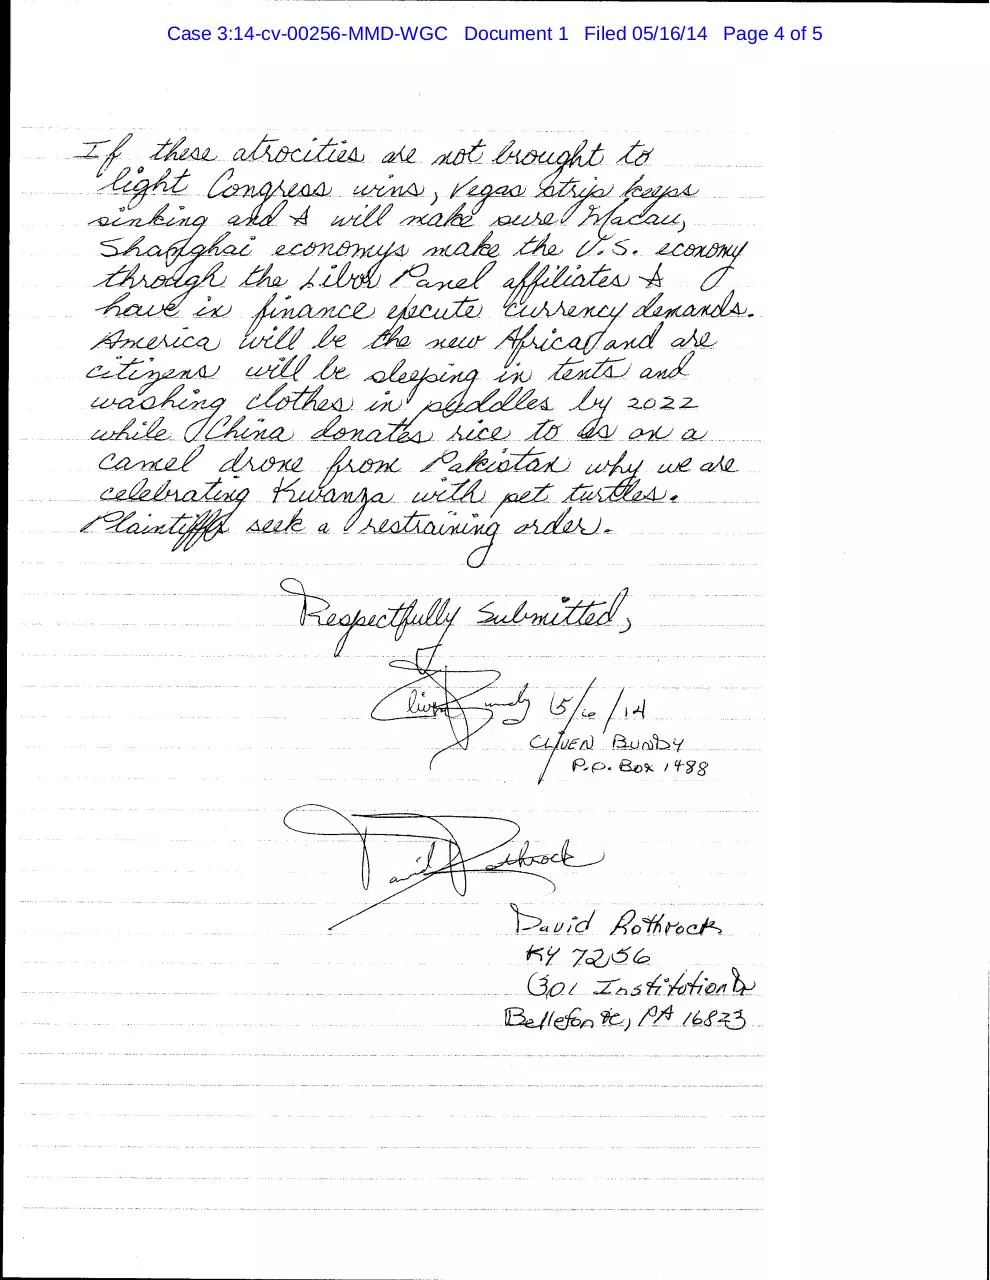 Case 3:14-cv-00256-MMD-WGC Document 1 Filed 05/16/14 Page 4 of 5
If these atrocities are not brought to
light Congress wins, Vegas strip keeps
sinking and I will make sure Macau,
Shanghai economys make the U.S. economy
through the Libor Panel affiliates I
have in finance execute currency demands.
America will be the new Africa and are
citizens will be sleeping in tents and
washing clothes in puddles by 2022
while China donates rice to us on a
camel drone from Pakistan why we are
celebrating Kwanza with pet turtles.
Plaintiffs seek a restraining order.
Respectfully Submitted,
Cliven Bundy 5/6/14
CLIVEN BUNDY
P.O. Box 1488
David Rothrock
David Rothrock
KY 7256
301 Institution Dr
Bellefonte, PA 16823